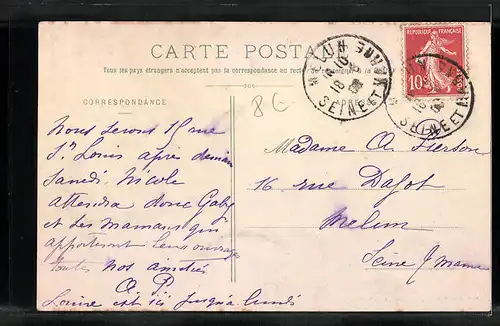 CARTE POSTALE
Tous les pays étrangers n'acceptent pas la correspondance au recto
CORRESPONDANCE
ADRESSE
MELUN
18
SEINE ET MARNE
RÉPUBLIQUE FRANÇAISE
10c
SEINE ET
8G
Nous serons 15 rue
St Louis après demain
Samedi Nicole
attendra donc Gaby
et Les Mamans qui
apporteront leurs ouvrages
toutes nos amitiés
A. P.
Louise est ici jusqu'à lundi
Madame A.
16 rue Dajot
Melun
Seine & Marne